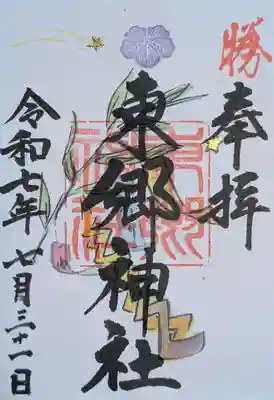 勝
奉拝
東郷神社
令和七年 七月三十一日
東郷
神社